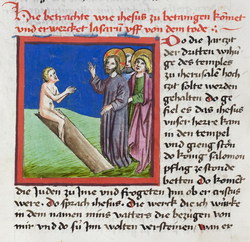 Hie betrachte wie ihesus zu betangen komet
und erwecket lasarū uff von dem tode
Do die zarzyt
der dritten wihi
ge des temples
zu iherusale hoch
zyt solte werden
gehalten do ge
fiel es das ihesus
unser herre kam
in den tempel
und gieng ston
do kunig salomon
pflag ze stonde
betten Do komet
die Juden zu Jme und frogeten Jnn ob er cristus
were do sprach ihesus die werck die ich wircke
in dem namen mins vatters die bezügen von
mir und do sü Jnn wolten versteinen was er